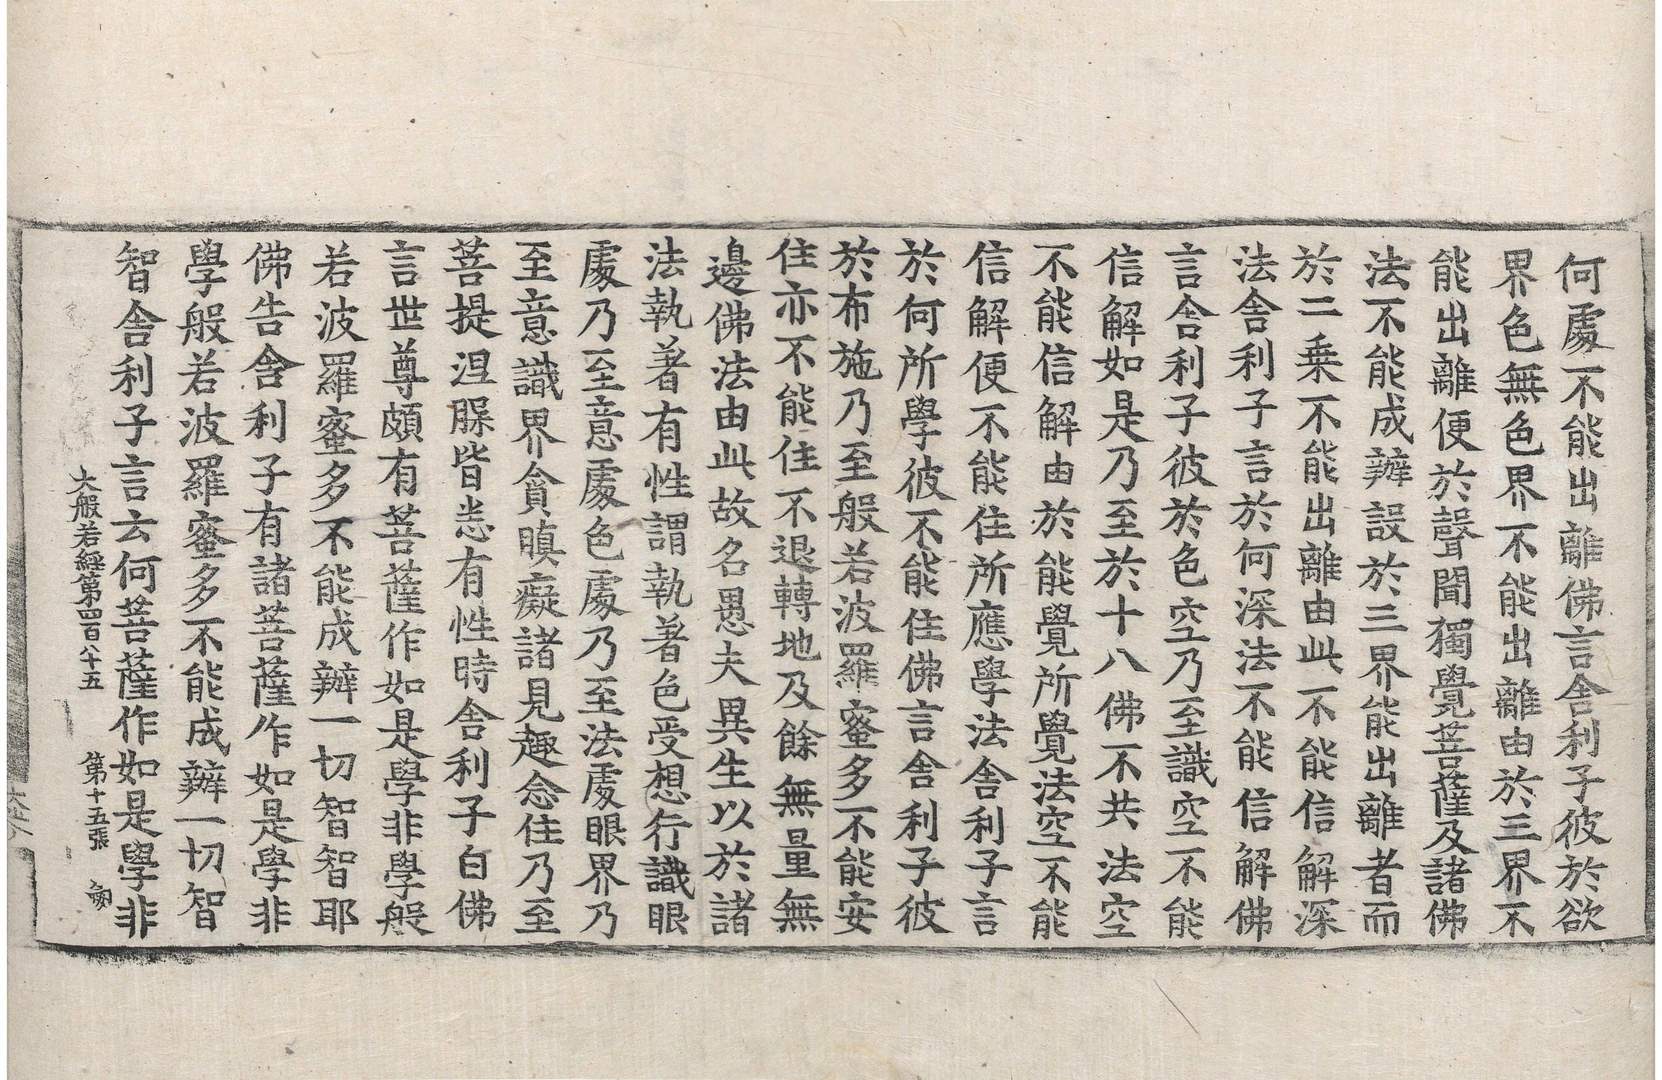 何處不能出離佛言舍利子彼於欲
界色無色界不能出離由於三界不
能出離便於聲聞獨覺菩薩及諸佛
法不能成辨設於三界能出離者而
於二乘不能出離由此不能信解深
法舍利子言於何深法不能信解佛
言舍利子彼於色空乃至識空不能
信解如是乃至於十八佛不共法空
不能信解由於能覺所覺法空不能
信解便不能住所應學法舍利子言
於何所學彼不能住佛言舍利子彼
於布施乃至般若波羅蜜多不能安
住亦不能住不退轉地及餘無量無
邊佛法由此故名愚夫異生以於諸
法執著有性謂執著色受想行識眼
處乃至意處色處乃至法處眼界乃
至意識界貪瞋癡諸見趣念住乃至
菩提涅槃皆悉有性時舍利子白佛
言世尊頗有菩薩作如是學非學般
若波羅蜜多不能成辦一切智智耶
佛告舍利子有諸菩薩作如是學非
學般若波羅蜜多不能成辦一切智
智舍利子言云何菩薩作如是學非
大般若經第四百八十五 第十五張